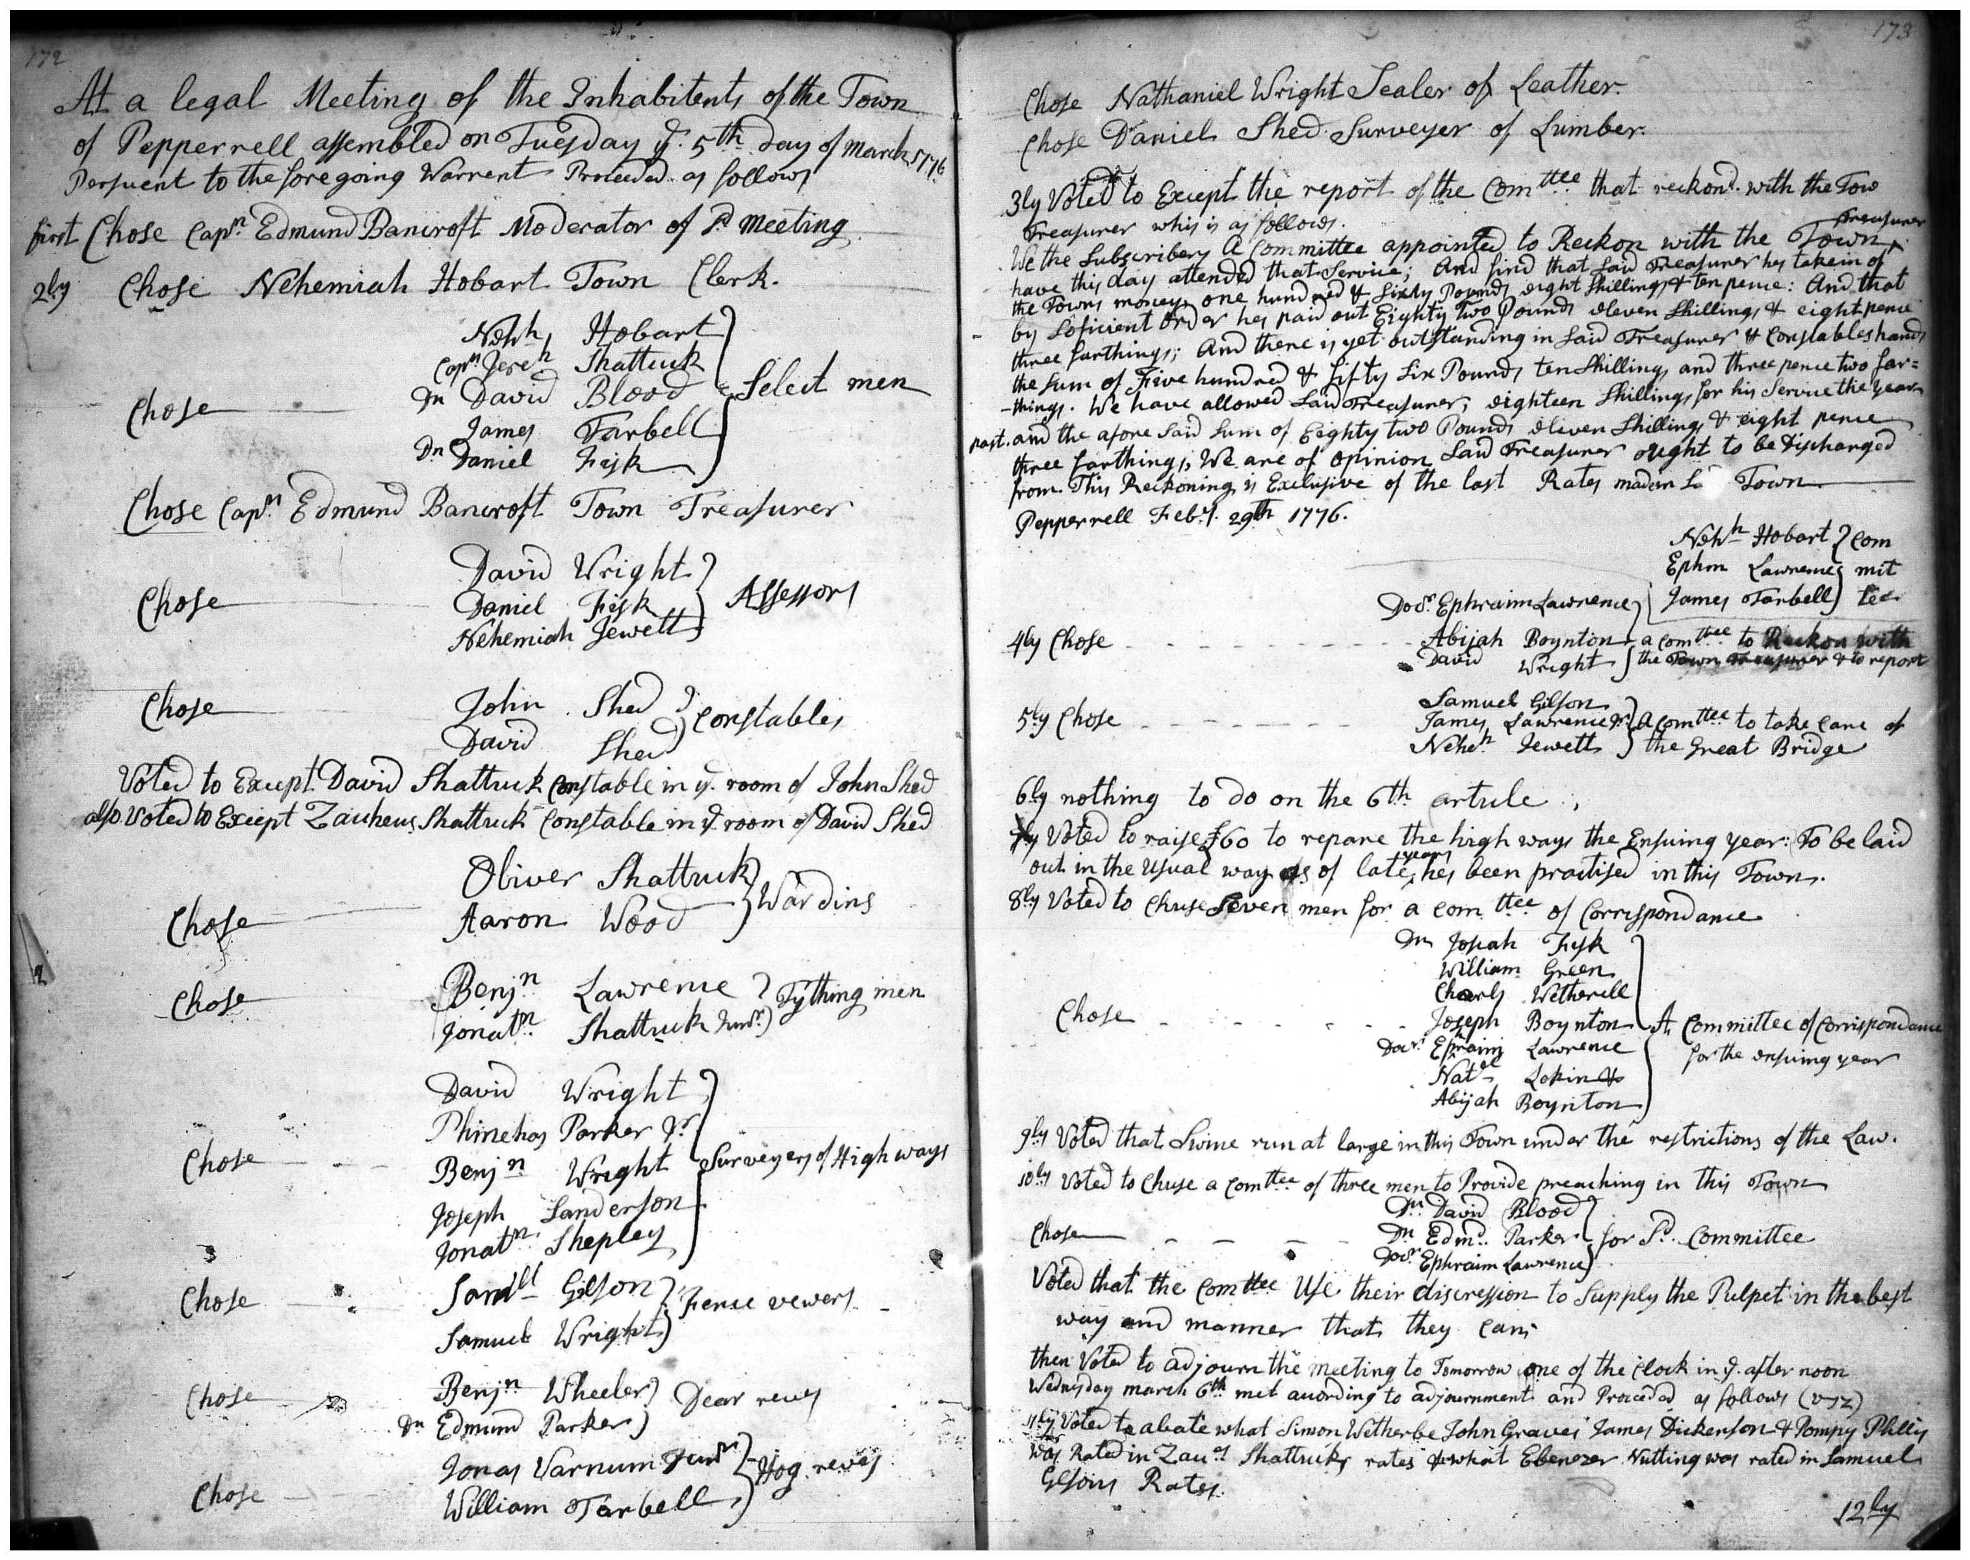 172
At a legal Meeting of the Inhabitents of the Town
of Pepperrell assembled on Tuesday ye. 5th day of march 1776
Persuent to the foregoing Warrent Proceeded as follows
first Chose Capn. Edmund Bancroft Moderator of sd meeting
2ly Chose Nehemiah Hobart Town Clerk.
Nehh Hobart
Capn Jereh Shattuck
Dn David Blood
Chose Select men
James Tarbell
Dn Daniel Fisk
Chose Capn. Edmund Bancroft Town Treasurer
David Wright
Chose Daniel Fisk Assessors
Nehemiah Jewett
Chose John Shed
David Shed Constables
Voted to Except David Shattuck Constable in ye. room of John Shed
also Voted to Except Zacheus Shattuck Constable in ye. room of David Shed
Oliver Shattuck
Chose Aaron Wood Wardins
Chose Benjn Lawrence
Jonatn. Shattuck Junr. Tything men
David Wright
Phinehas Parker Jr
Chose Benjn Wright Surveyers of High ways
Joseph Sanderson
Jonatn. Shepley
Chose Samll Gilson Fence vewers
Samuel Wright
Chose Benjn Wheeler Dear reves
Dn Edmund Parker
Jonas Varnum Junr Hog reves
Chose William Tarbell
173
Chose Nathaniel Wright Sealer of Leather.
Chose Daniel Shed Surveyer of Lumber.
3ly Voted to Except the report of the Comttee that reckond. with the Tow
Treasurer whis is as follows.
We the Subscribers A Committee appointed to Reckon with the Town Treasurer
have this day attended that Service; And find that Said Treasurer hes taken of
the Towns money one hundred & Sixty Pounds eight Shillings & ten pence: And that
by Soficient order hes paid out Eighty Two Pounds eleven Shillings & eight pence
three farthings; And there is yet outstanding in Said Treasurer & Constables hands
the Sum of Five hundred & fifty Six Pounds ten Shillings and three pence two far=
-things. We have allowed Said Treasurer, eighteen Shillings for his Service the year
past. and the afore Said Sum of Eighty two Pounds eleven Shillings & eight pence
three farthings; We are of opinion Said Treasurer ought to be Discharged
from. This Reckoning is Exclusive of the last Rates made in Town
Pepperrell Feby. 29th 1776.
Nehh Hobart Com
Ephm Lawrence mit
James Tarbell tee
Docr. Ephraim Lawrence
4ly Chose Abijah Boynton a Comttee to Reckon with
David Wright the Town Treasurer & to report
Samuel Gilson
5ly Chose James Lawrence Jr. a Comttee to take Care of
Neheh Jewett the Great Bridge
6ly nothing to do on the 6th article.
7ly Voted to raise £60 to repare the high ways the Ensuing year: To be laid
out in the usual way as of late years hes been practised in this Town.
8ly Voted to Chuse Seven men for a Comttee of Correspondance
Dn Josiah Fisk
William Green
Charls Wetherell
Chose Joseph Boynton A Committee of Correspondance
Docr. Ephraim Lawrence for the ensuing year
Natel Lakin &
Abijah Boynton
9ly Voted that Swine run at large in this Town under the restrictions of the Law.
10ly Voted to Chuse a Comttee of three men to Provide preaching in this Town
Dn. David Blood
Chose Dn Edmd. Parker for sd. Committee
Docr Ephraim Lawrence
Voted that the Comttee Use their discression to Supply the Pulpet in the best
way and manner that they can;
then Voted to adjourn the meeting to Tomorrow one of the Clock in ye. after noon
Wednsday march 6th met acording to adjournment and Proceded as follows (viz)
11ly Voted to abate what Simon Witherbe John Graves James Dickerson & Pompy
was Rated in Zacs Shattucks rates & what Ebenezer Nutting was rated in Samuel
Gilsons Rates.
12ly